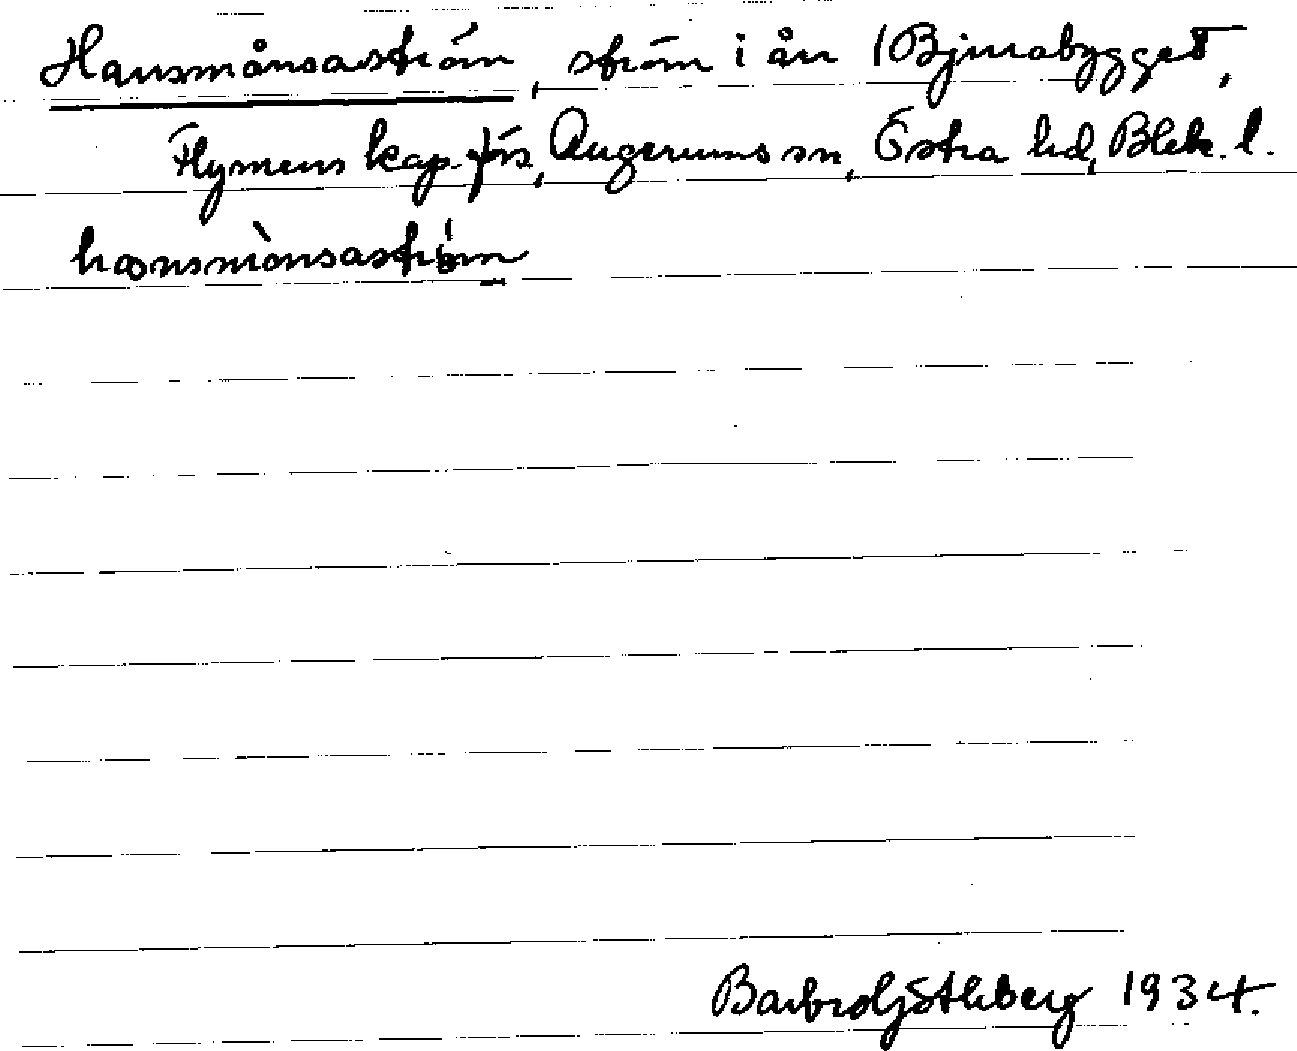 Hansmånsaström, ström i ån i Bjurabygget,
Flymens kap.förs, Augerums sn, Östra hd, Blek. l.
hansmònsaström
Barbro Göthberg 1934.